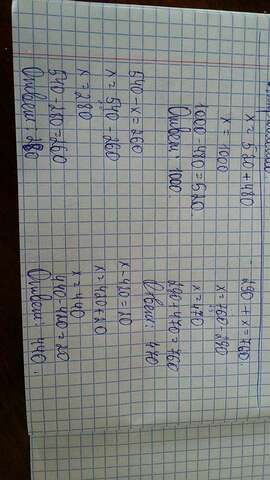 x = 520 + 480
x = 1000
1000 - 480 = 520
Ответ: 1000.
540 - x = 260
x = 540 - 260
x = 280
540 - 280 = 260
Ответ: 280
290 + x = 760
x = 760 - 290
x = 470
290 + 470 = 760
Ответ: 470
x = 420 + 20
x = 440
Ответ: 440.